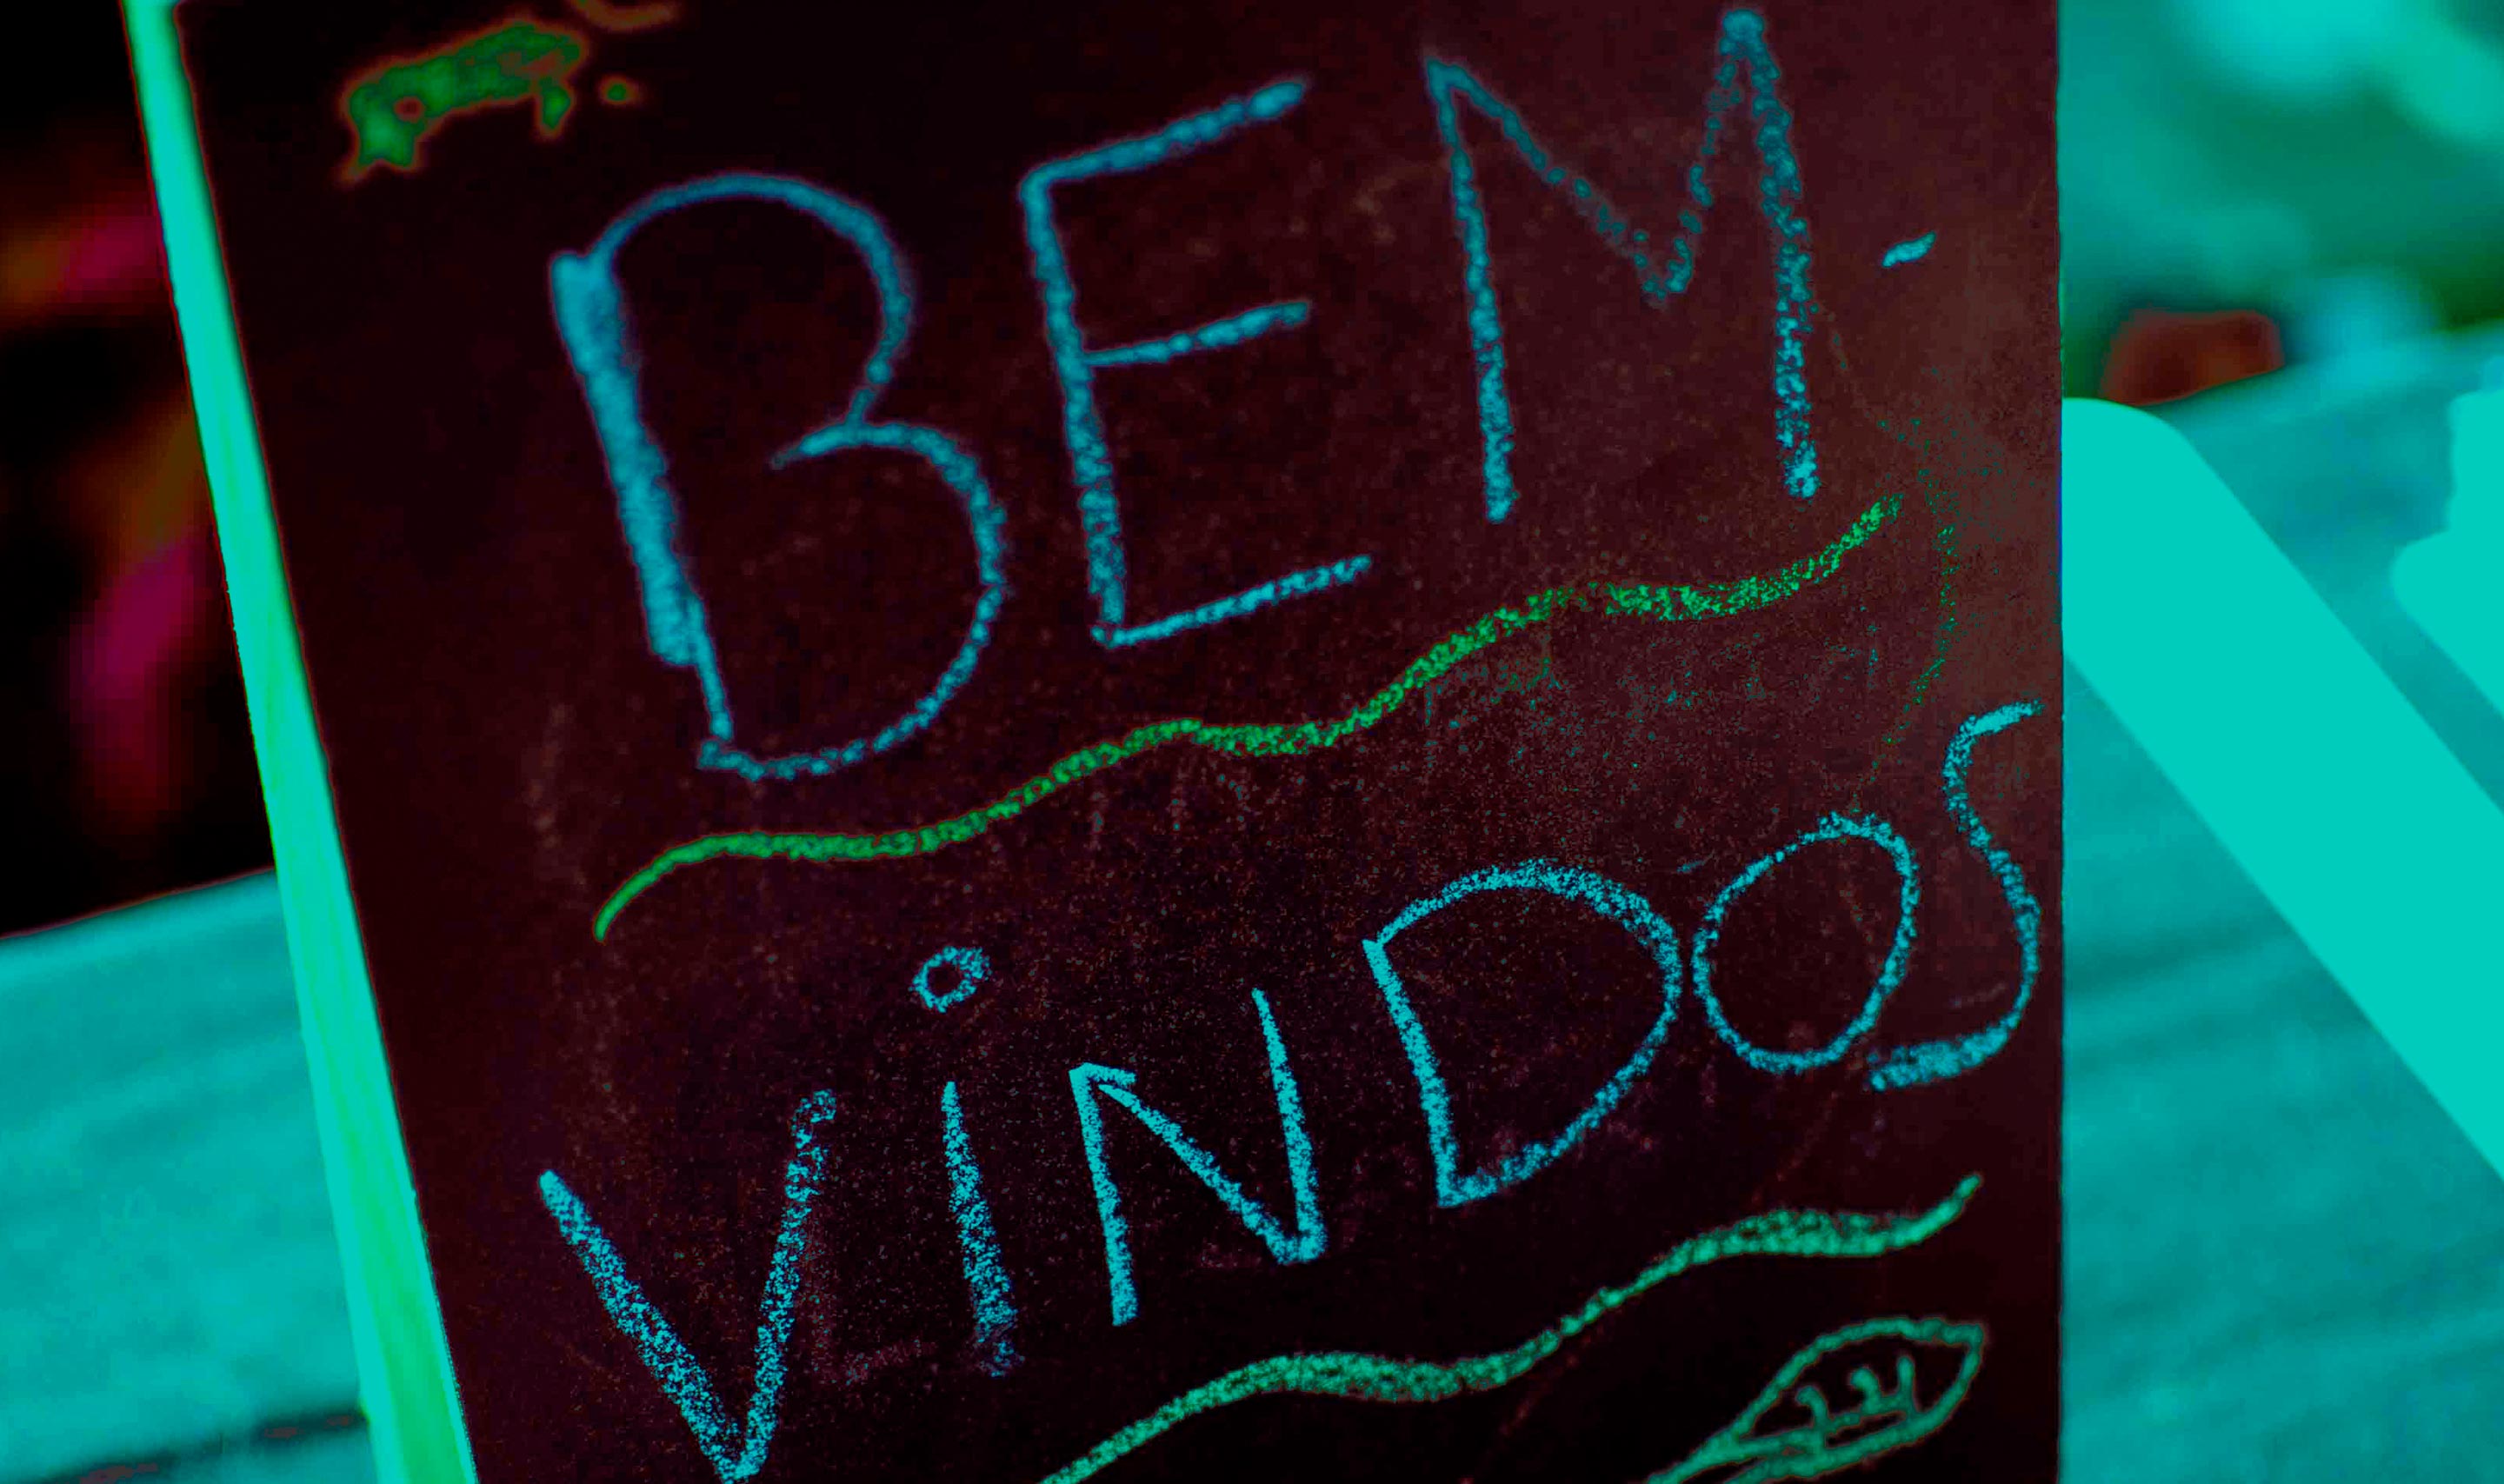 BEM-
ViNDOS